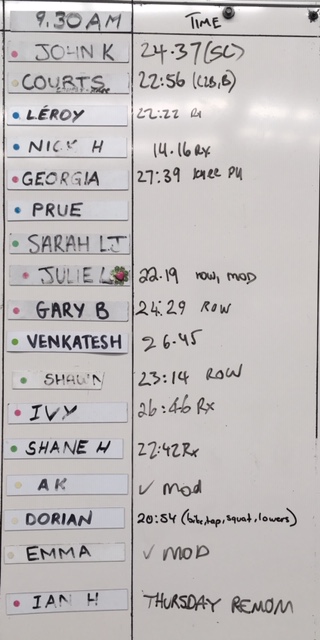 9.30AM TIME
JOHN K 24.37(SC)
COURTS 22:56
LÉROY 22:22 Rx
NICK H 14.16 Rx
GEORGIA 27:39 knee PU
PRUE
SARAH LJ
JULIE L 22.19 row, MOD
GARY B 24:29 ROW
VENKATESH 26:45
SHAUN 23:14 ROW
IVY 26:46 Rx
SHANE H 22:42 Rx
AK ✓ mod
DORIAN 20:54 (bike, tap, squat, lowers)
EMMA ✓ MOD
IAN H THURSDAY REMOM